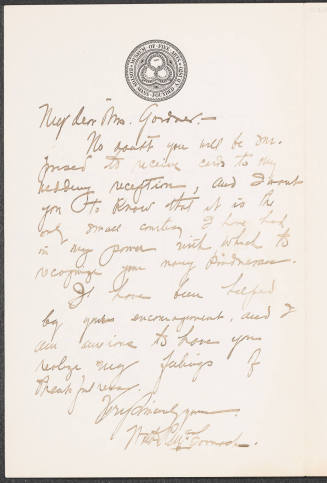 MUSEUM OF FINE ARTS
My dear Mrs. Gardner —
No doubt you will be sur-
prised to receive cards to my
wedding reception, and I want
you to know that it is the
only small courtesy I have had
in my power with which to
recognize your many kindnesses.
I have been helped
by your encouragement, and I
am anxious to have you
realize my feelings of
thankfulness.
Very sincerely yours